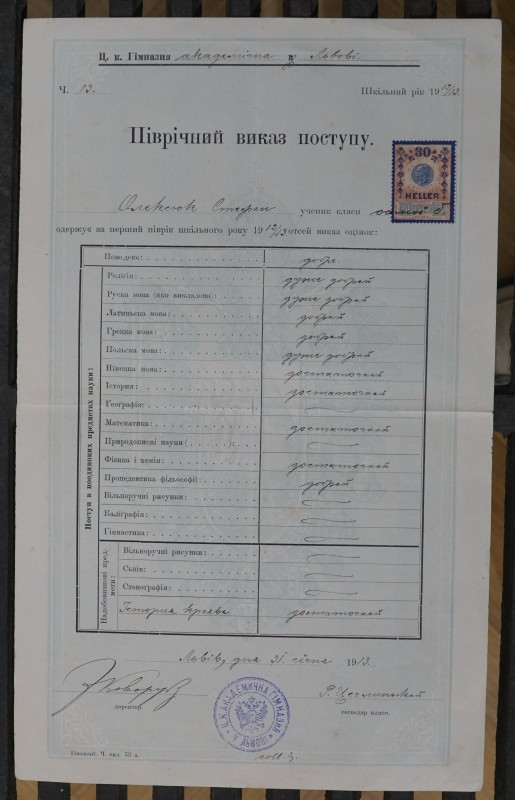 Ц. к. Гімназия академічна у Львові.
Ч. 13.
Шкільний рік 1912/13.
Піврічний виказ поступу.
30
HELLER
Олексюк Стефан ученик кляси
одержує за перший піврік шкільного року 1912/13 отсей виказ оцінок:
Поведенє: добре
Поступ в поодиноких предметах науки:
Релігія: дуже добрий
Руска мова (яко викладова): дуже добрий
Латиньска мова: добрий
Грецка мова: добрий
Польска мова: дуже добрий
Німецка мова: достаточний
Істория: достаточний
Ґеоґрафія:
Математика: достаточний
Природописні науки ( ):
Фізика і хемія: достаточний
Пропедевтика фільософії: добрий
Вільноручні рисунки:
Калїґрафія:
Гімнастика:
Надобовязкові предмети:
Вільноручні рисунки:
Сьпів:
Стеноґрафія:
Істория краєва достаточний
Львів, дня 31 січня 1913.
директор.
Р. Цегліньский
господар кляси.
Ц.К. АКАДЕМИЧНА ГІМНАЗИЯ У ЛЬВОВІ
Гімназиї. Ч. скл. 53 а.